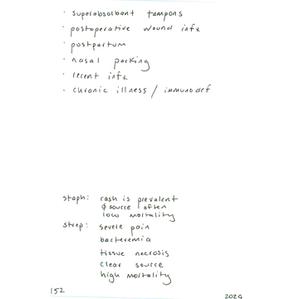 · superabsorbant tampons
· postoperative wound infx
· postpartum
· nasal packing
· recent infx
· chronic illness / immunodef
staph: rash is prevalent
∅ source often
low mortality
strep: severe pain
bacteremia
tissue necrosis
clear source
high mortality
152
2024